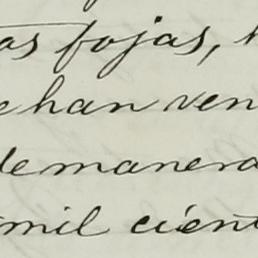 as fojas,
ehan ven
de manera
mil cient